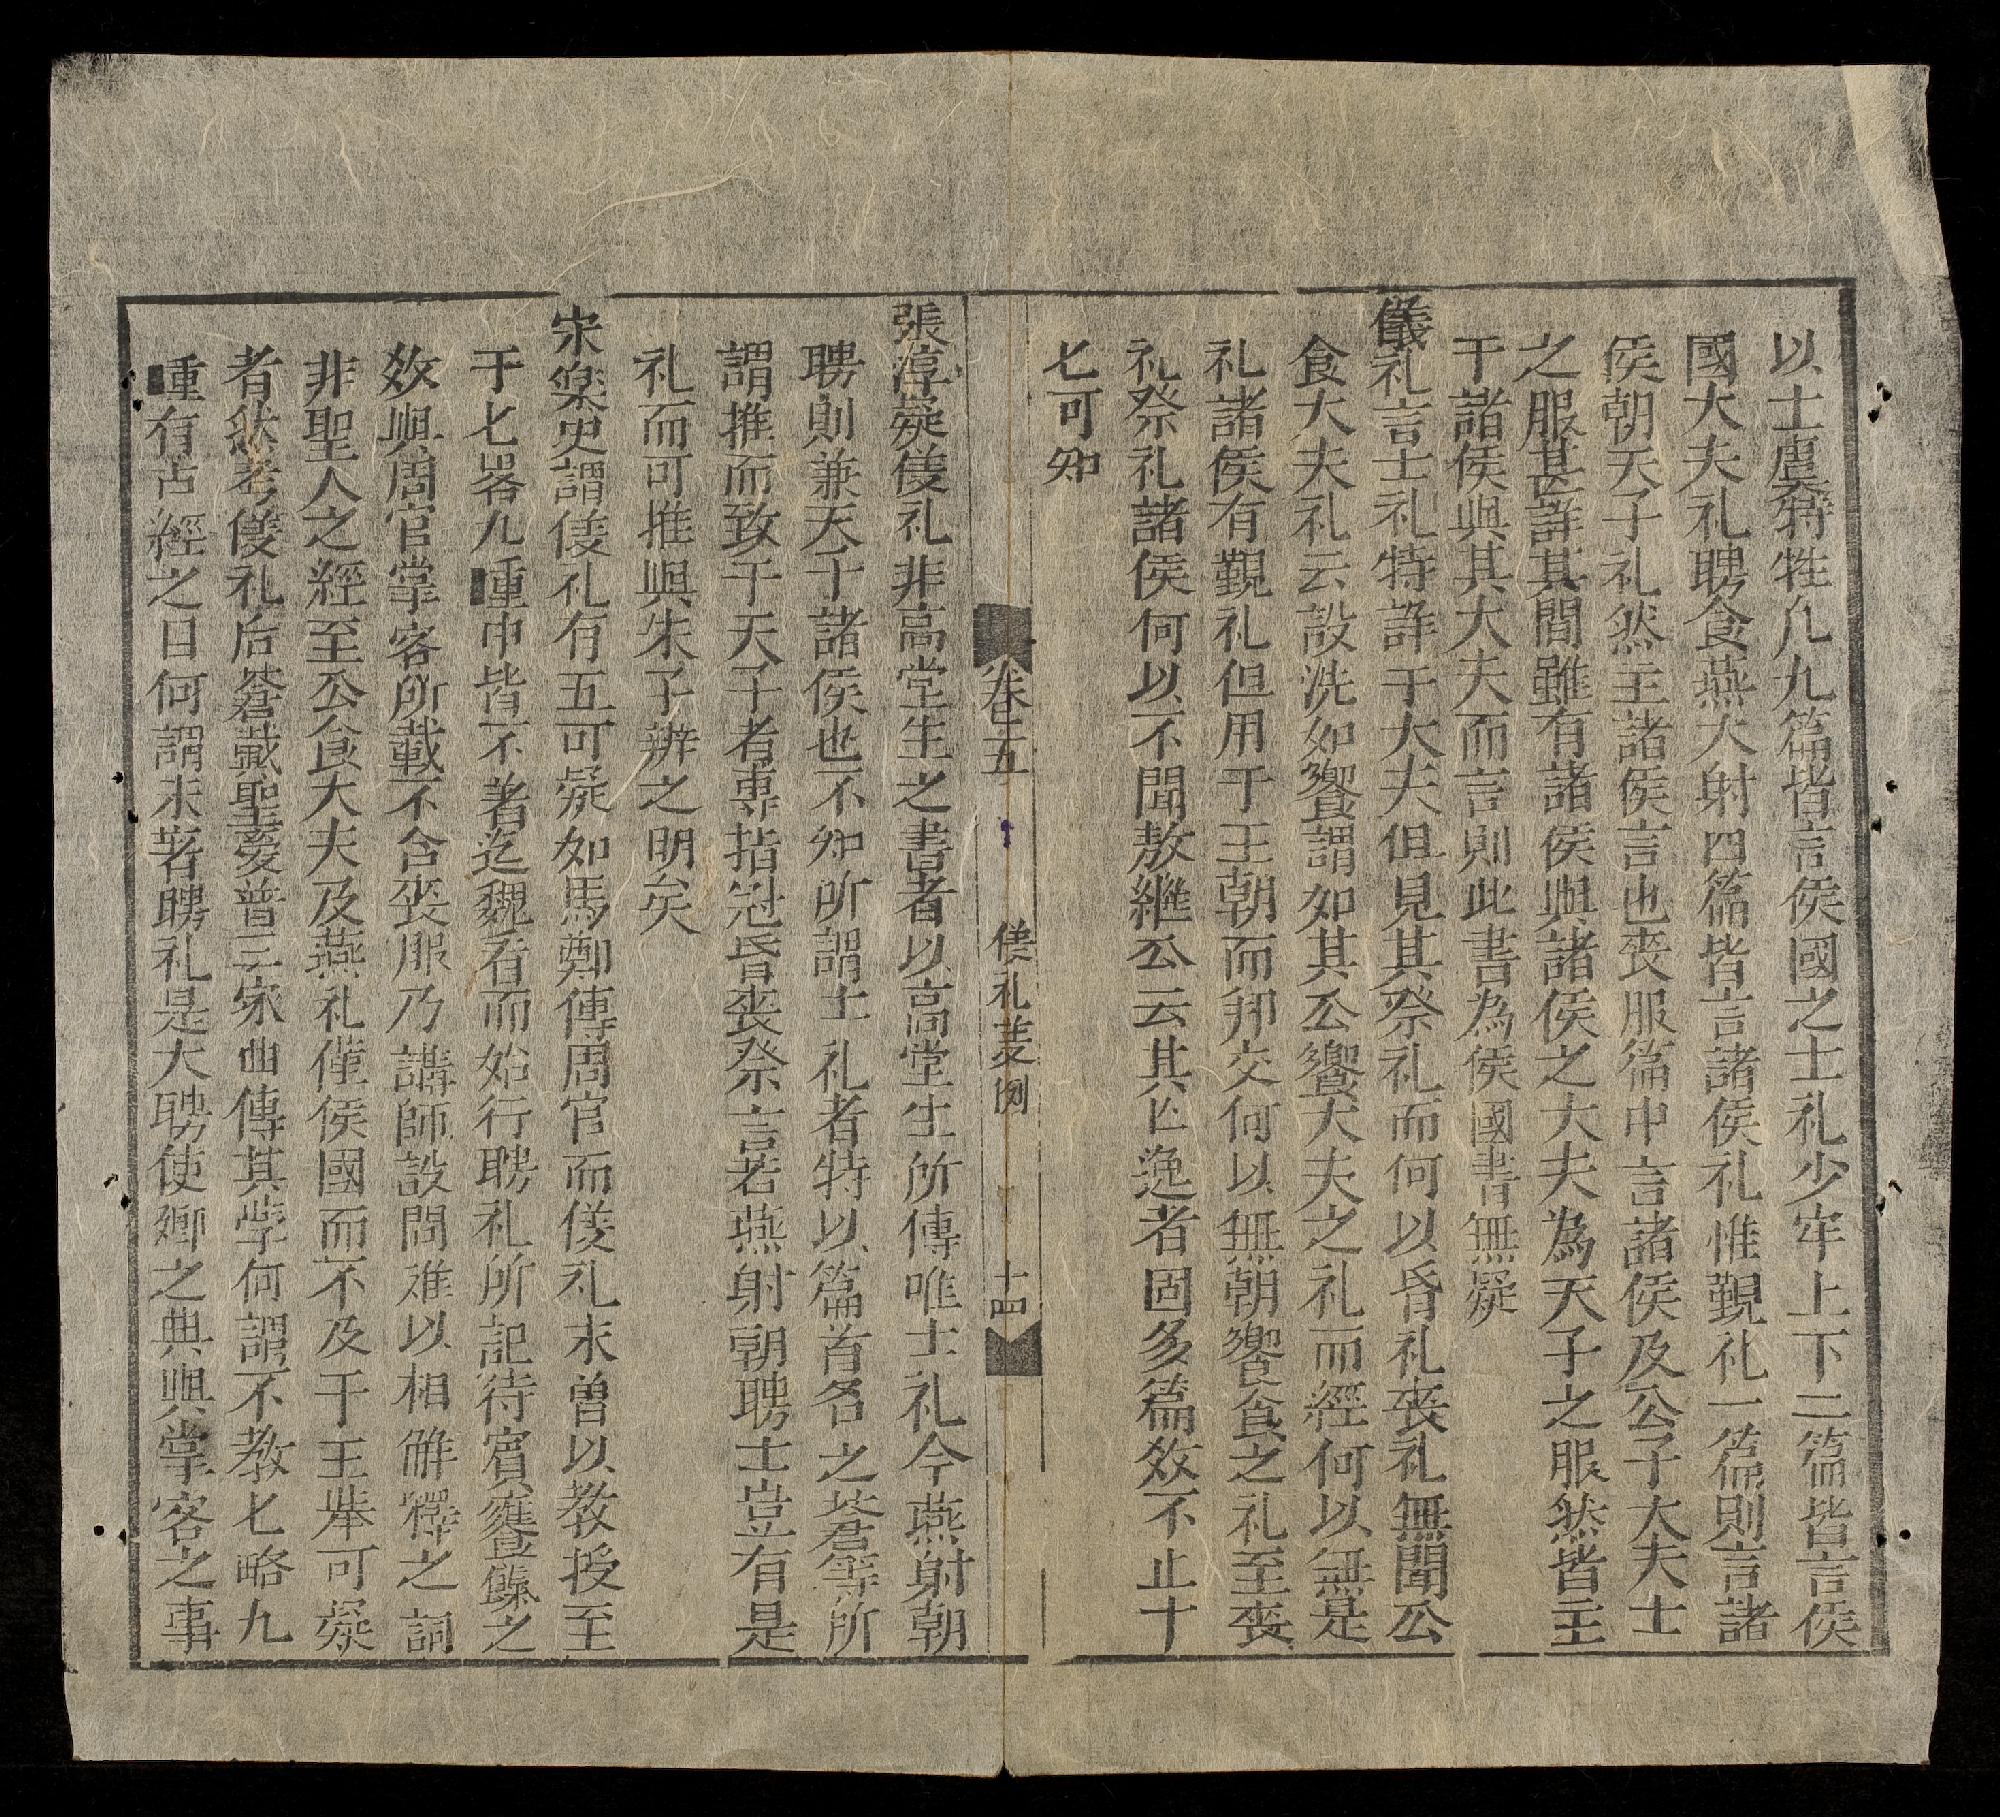 以士虞特牲凡九篇皆言侯國之士礼少牢上下二篇皆言侯
國大夫礼聘食燕大射四篇皆言諸侯礼惟覲礼一篇則言諸
侯朝天子礼然主諸侯言也喪服篇中言諸侯及公子大夫士
之服甚詳其間雖有諸侯與諸侯之大夫為天子之服然皆主
于諸侯與其大夫而言則此書為侯國書無疑
儀礼言士礼特詳于大夫但見其祭礼而何以昏礼喪礼無聞公
食大夫礼云設洗如饗謂如其公饗大夫之礼而經何以無是
礼諸侯有覲礼但用于王朝而邦交何以無朝饗食之礼至喪
礼祭礼諸侯何以不聞敖繼公云其亾逸者固多篇数不止十
七可知
卷五 儀礼彖例 十四
張淳疑儀礼非高堂生之書者以高堂生所傳唯士礼今燕射朝
聘則兼天子諸侯也不知所謂士礼者特以篇首名之苍等所
謂推而致于天子者專指冠昏喪祭言若燕射朝聘士豈有是
礼而可推與朱子辨之明矣
宋楽史謂儀礼有五可疑如馬鄭傳周官而儀礼未曽以教授至
于七畧九種中皆不著迄魏着而始行聘礼所記待賓饔餼之
数與周官掌客所載不合喪服乃講師設問难以相觧釋之詞
非聖人之經至公食大夫及燕礼僅侯國而不及于王举可疑
者然考儀礼后蒼戴聖慶普三家曲傳其学何謂不教七略九
種有古經之目何謂未著聘礼是大聘使卿之典與掌客之事